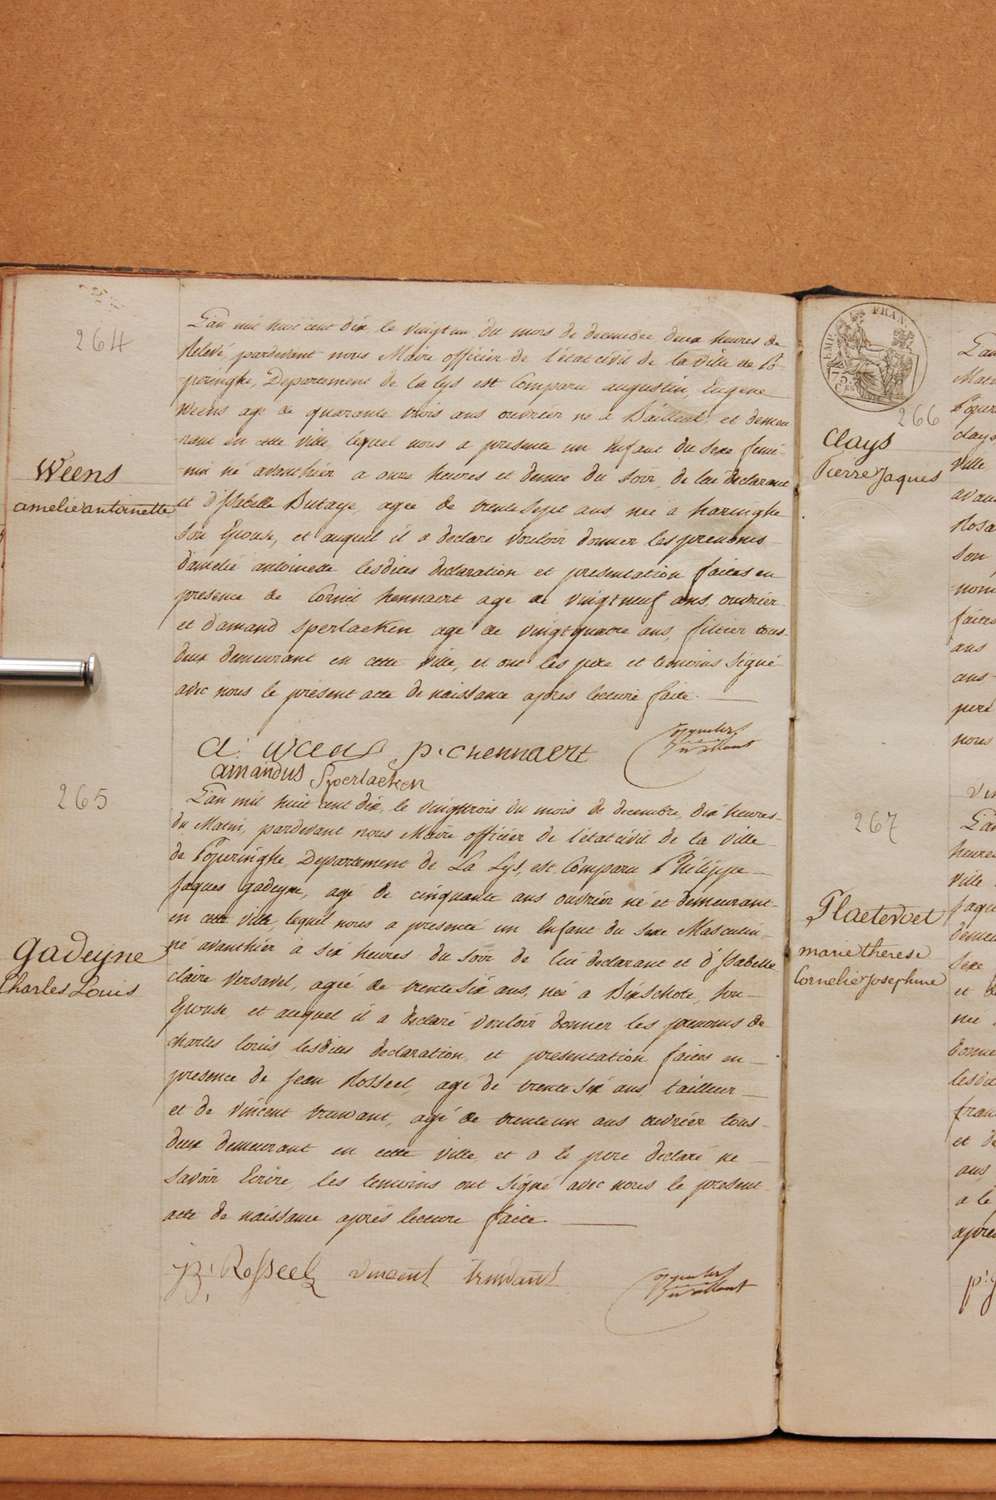 264
Weens
amelie antoinette
L'an mil huit cent dix le vingt un du mois de decembre deux heures de
Relevé, pardevant nous Maire officier de l'état civil de la ville de Po-
-peringhe, Departement de la Lys est Comparu augustin, Eugene
Weens agé de quarante trois ans ouvrier né à Bailleul et demeu
rant en cette ville, lequel nous a presenté un Enfant du sexe femi-
-nin né avanthier a onze heures et demie du soir, de lui declarant
et d'Isabelle Butaye, agée de trente sept ans née a haringhe
son Epouse, et auquel il a declaré vouloir donner les prenoms
d'amelie antoinette lesdites declaration et presentation faites en
presence de Cornil hennaert agé de vingt neuf ans, ouvrier
et d'amand Sperlaeken agé de vingt quatre ans, filtier tous
deux demeurant en cette ville, et ont les pere et temoins signé
avec nous le présent acte de naissance après lecture faite.
a. weens p. c hennaert
amandus Sperlaeken
265
Gadeyne
Charles Louis
L'an mil huit cent dix, le vingt trois du mois de decembre, dix heures
du Matin, pardevant nous Maire officier de l'état civil de la ville
de Poperinghe Departement de La Lys, est Comparu Philippe
Jaques gadeyne, agé de cinquante ans ouvrier né et demeurant
en cette ville, lequel nous a presenté un Enfant du sexe Masculin
né avanthier a six heures du soir de lui declarant et d'Isabelle
claire Versavel, agée de trente six ans, née à Bixschote, son
Epouse, et auquel il a declaré vouloir donner les prenoms de
charles louis lesdites declaration, et presentation faites en
presence de Jean Rosseel, agé de trente six ans tailleur
et de vincent truwant, agé de trente un ans ouvrier tous
deux demeurant en cette ville et a le pere declaré ne
savoir Ecrire, les temoins ont signé avec nous le present
acte de naissance après lecture faite.
J. B. Rosseel vincent
266
Clays
Pierre Jaques
L'an
Maire
clays
ville
avan
Rosa
son
nom
faites
ans
ans
pere
nous
267
Plaetevoet
marie therese
Cornelie Josephine
L'an
heures
ville
jaque
demeu
sexe
et d
née
donne
lesdi
fran
et de
ans
a le
après